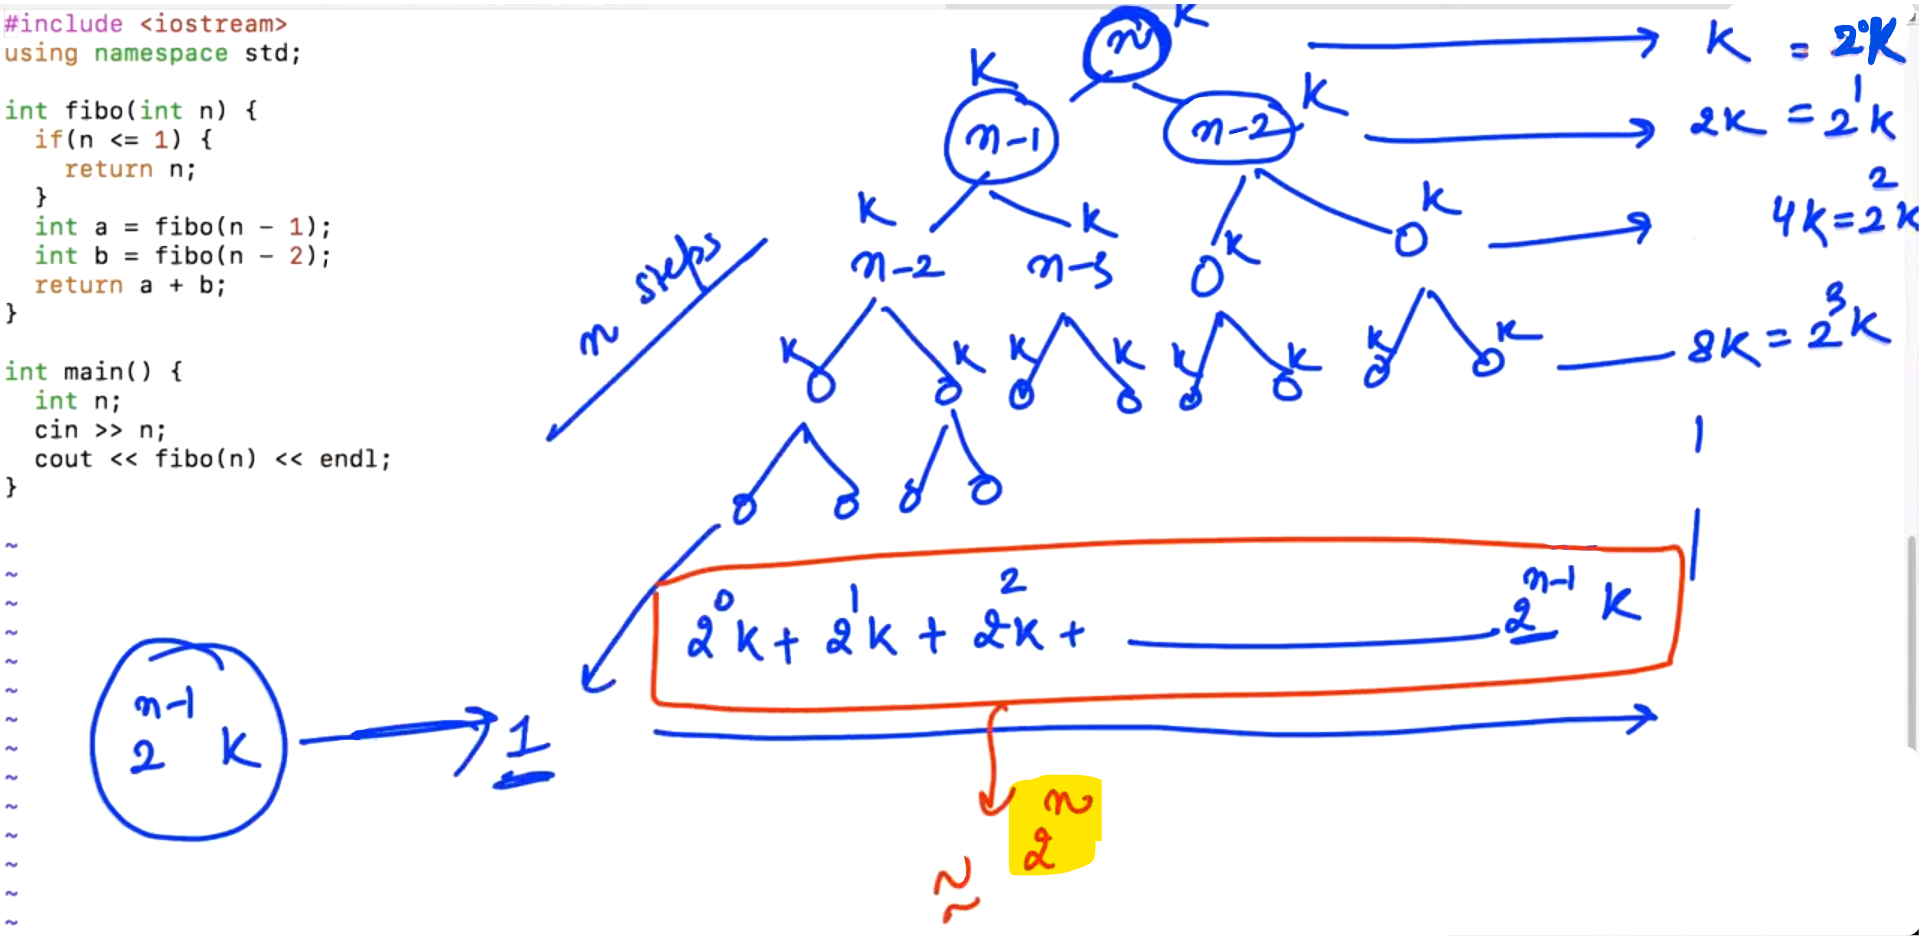 #include <iostream>
using namespace std;
int fibo(int n) {
if(n <= 1) {
return n;
}
int a = fibo(n - 1);
int b = fibo(n - 2);
return a + b;
}
int main() {
int n;
cin >> n;
cout << fibo(n) << endl;
}
~
~
~
~
~
~
~
~
~
~
~
~
~
~
n K → K = 2⁰K
K n-1 n-2 K → 2K = 2¹K
K n-2 K n-3 O K O K → 4K = 2²K
n steps
K O K O K O K O K O K O K O K O 8K = 2³K
O O O O
2⁰K + 2¹K + 2²K + 2ⁿ⁻¹ K
2ⁿ⁻¹ K → 1
≈ 2ⁿ